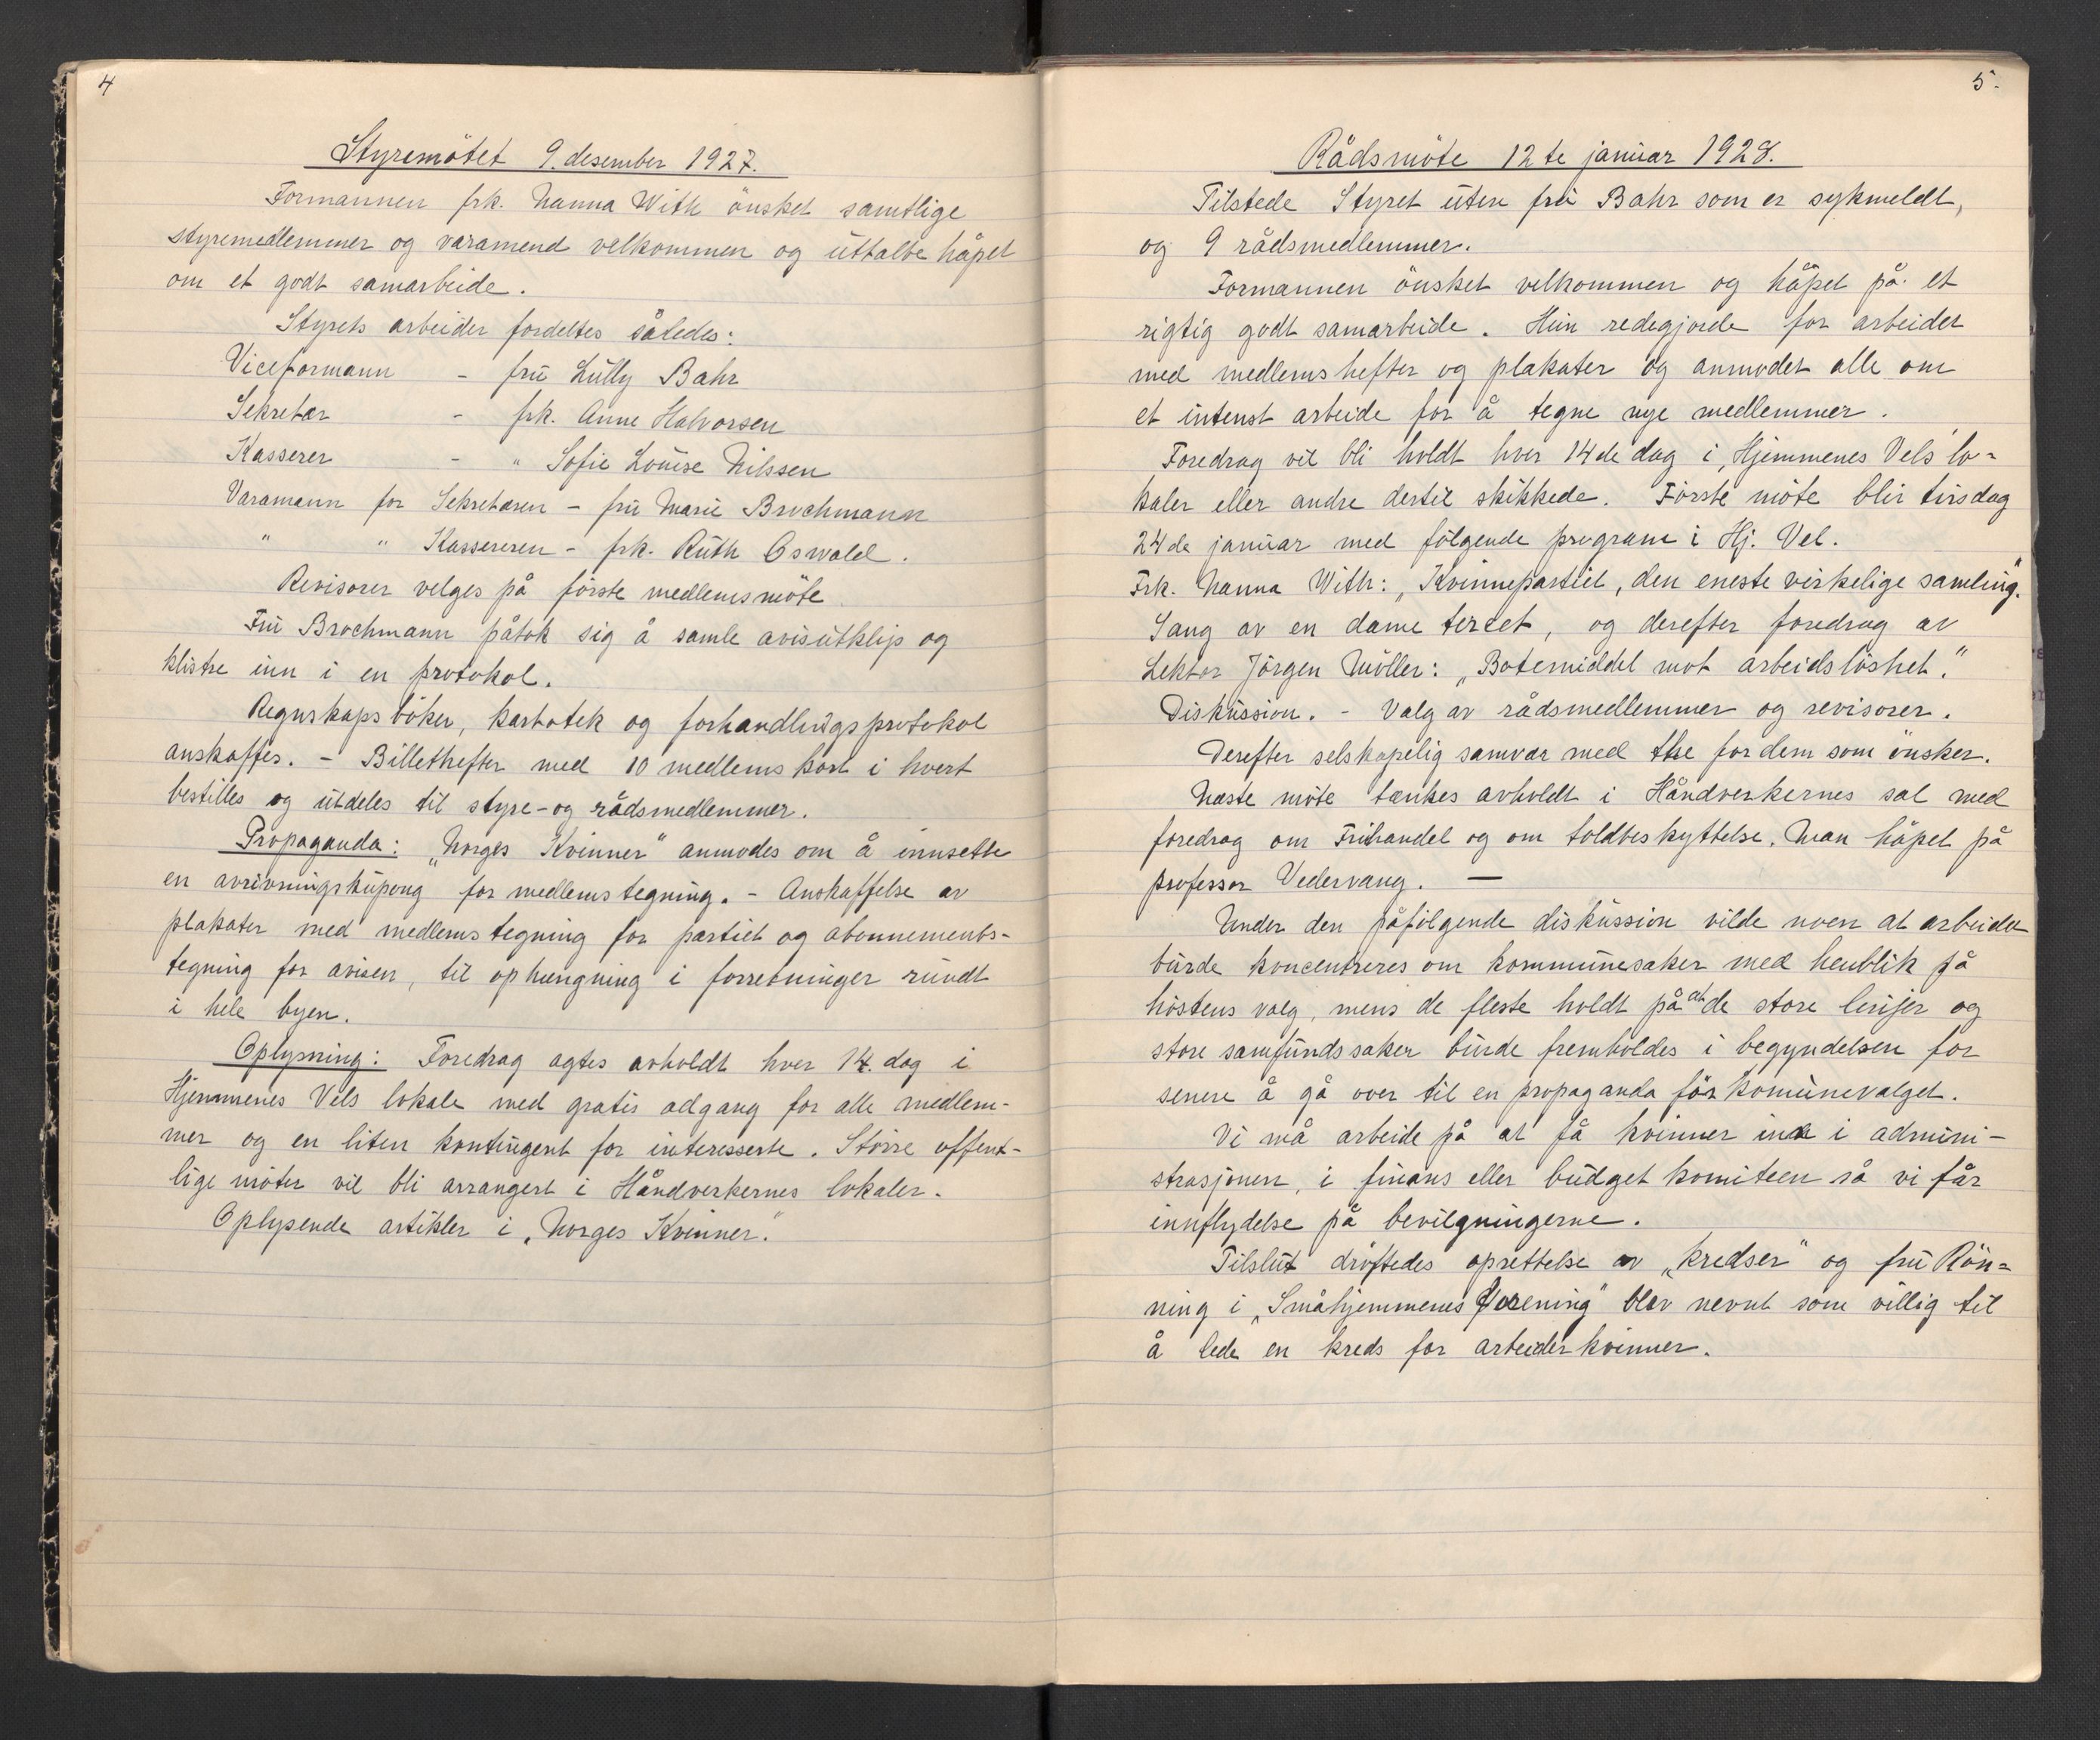 4
Styremötet 9. desember 1927.
Formannen frk. Nanna With önsket samtlige
styremedlemmer og varamend velkommen og uttalte håpet
om et godt samarbeide.
Styrets arbeider fordeltes således:
Viceformann - fru Lully Bahr
Sekretær - frk. Anne Halvorsen
Kasserer - " Sofie Louise Nilssen
Varamann for Sekretæren - fru Marie Brochmann
" " Kassereren - frk. Ruth Oswald.
Revisorer velges på förste medlemsmöte.
Fru Brochmann påtok sig å samle avisutklip og
klistre inn i en protokol.
Regnskapsböker, kartotek og forhandlingsprotokol
anskaffes. - Billethefter med 10 medlemskort i hvert
bestilles og utdeles til styre- og rådsmedlemmer.
Propaganda: „Norges Kvinner“ anmodes om å innsette
en avrivningskupong for medlemstegning. - Anskaffelse av
plakater med medlemstegning for partiet og abonnements-
tegning for avisen, til ophængning i forretninger rundt
i hele byen.
Oplysning: Foredrag agtes avholdt hver 14. dag i
Hjemmenes Vels lokale med gratis adgang for alle medlem-
mer og en liten kontingent for interesserte. Större offent-
lige möter vil bli arrangert i Håndverkernes lokaler.
Oplysende artikler i „Norges Kvinner.“
5.
Rådsmöte 12te januar 1928.
Tilstede Styret uten fru Bahr som er sykmeldt,
og 9 rådsmedlemmer.
Formannen önsket velkommen og håpet på et
rigtig godt samarbeide. Hun redegjorde for arbeidet
med medlemshefter og plakater og anmodet alle om
et intenst arbeide for å tegne nye medlemmer.
Foredrag vil bli holdt hver 14de dag i „Hjemmenes Vels lo-
kaler eller andre dertil skikkede. Förste möte blir tirsdag
24de januar med fölgende program i Hj. Vel.
Frk. Nanna With: „Kvinnepartiet, den eneste virkelige samling.“
Sang av en dame terzet, og derefter foredrag av
Lektor Jörgen Möller: „Botemiddel mot arbeidslöshet.“
Diskussion. - Valg av rådsmedlemmer og revisorer.
Derefter selskapelig samvær med the for dem som önsker.
Næste möte tænkes avholdt i Håndverkernes sal med
foredrag om Frihandel og om toldbeskyttelse. Man håpet på
professor Vedervang. —
Under den påfölgende diskussion vilde noen at arbeidet
burde koncentreres om kommunesaker med henblik på
höstens valg, mens de fleste holdt på at de store linjer og
store samfundssaker burde fremholdes i begyndelsen for
senere å gå over til en propaganda för komunevalget.
Vi må arbeide på at få kvinner inn i admini-
strasjonen, i finans eller budget komiteen så vi får
innflydelse på bevilgningerne.
Tilslut dröftedes oprettelse av „kredser“ og fru Rön-
ning i „Småhjemmenes Forening“ blev nevnt som villig til
å lede en kreds for arbeiderkvinner.